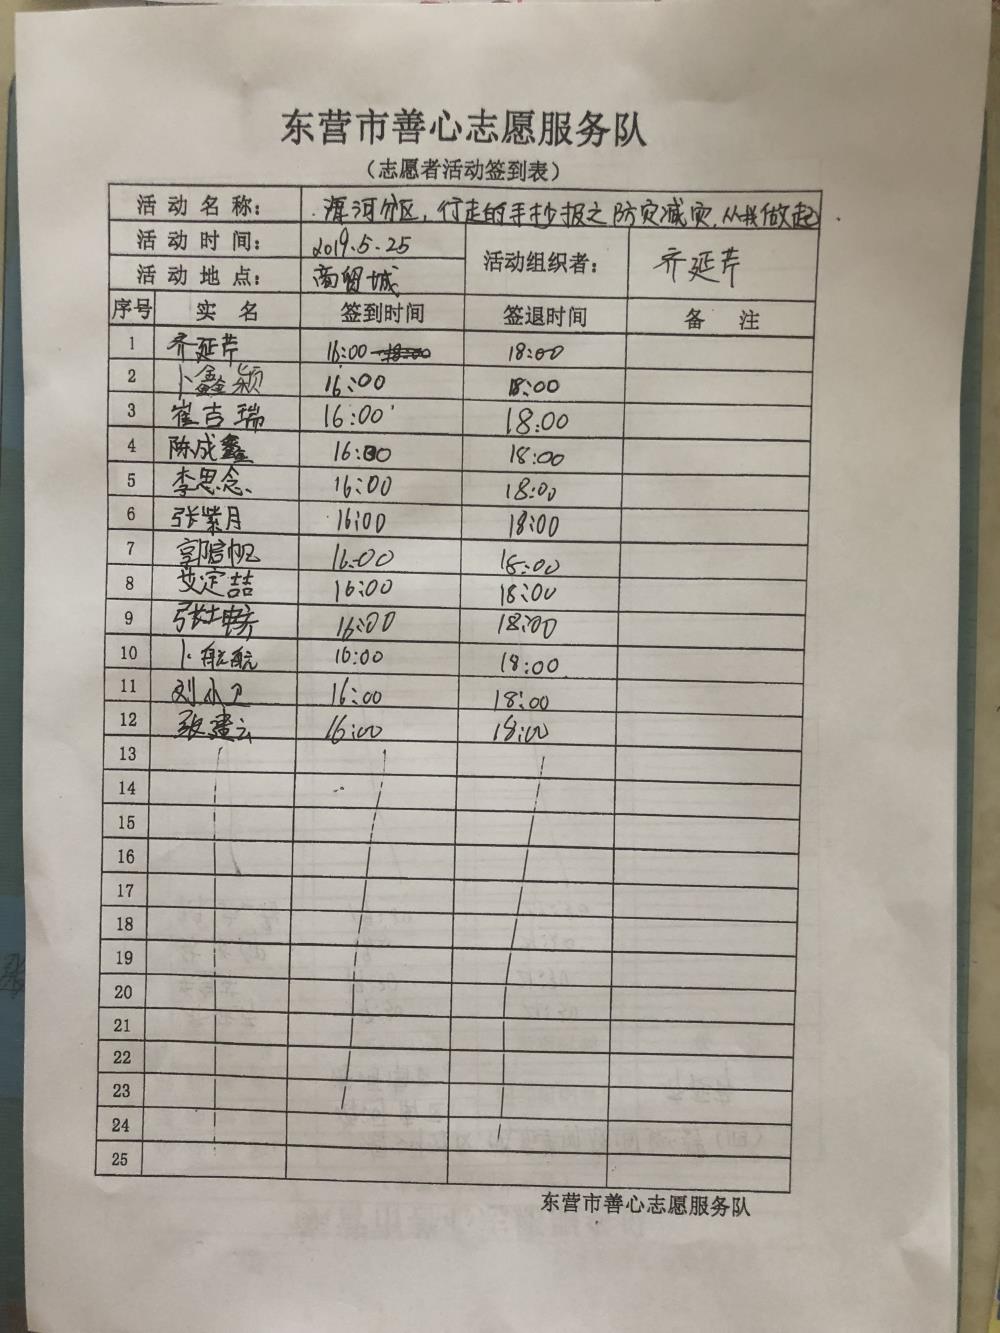 东营市善心志愿服务队
（志愿者活动签到表）
活动名称： 淠河分区，行走的手抄报之防灾减灾，从我做起
活动时间： 2019.5.25 活动组织者： 齐延芹
活动地点： 商贸城
序号 实名 签到时间 签退时间 备注
1 齐延芹 16:00 18:00 18:00
2 卜鑫颖 16:00 18:00
3 崔吉瑞 16:00 18:00
4 陈成鑫 16:00 18:00
5 李思念 16:00 18:00
6 张紫月 16:00 18:00
7 郭启帆 16:00 18:00
8 艾定喆 16:00 18:00
9 16:00 18:00
10 卜航航 16:00 18:00
11 刘小卫 16:00 18:00
12 张建云 16:00 18:00
13
14
15
16
17
18
19
20
21
22
23
24
25
东营市善心志愿服务队